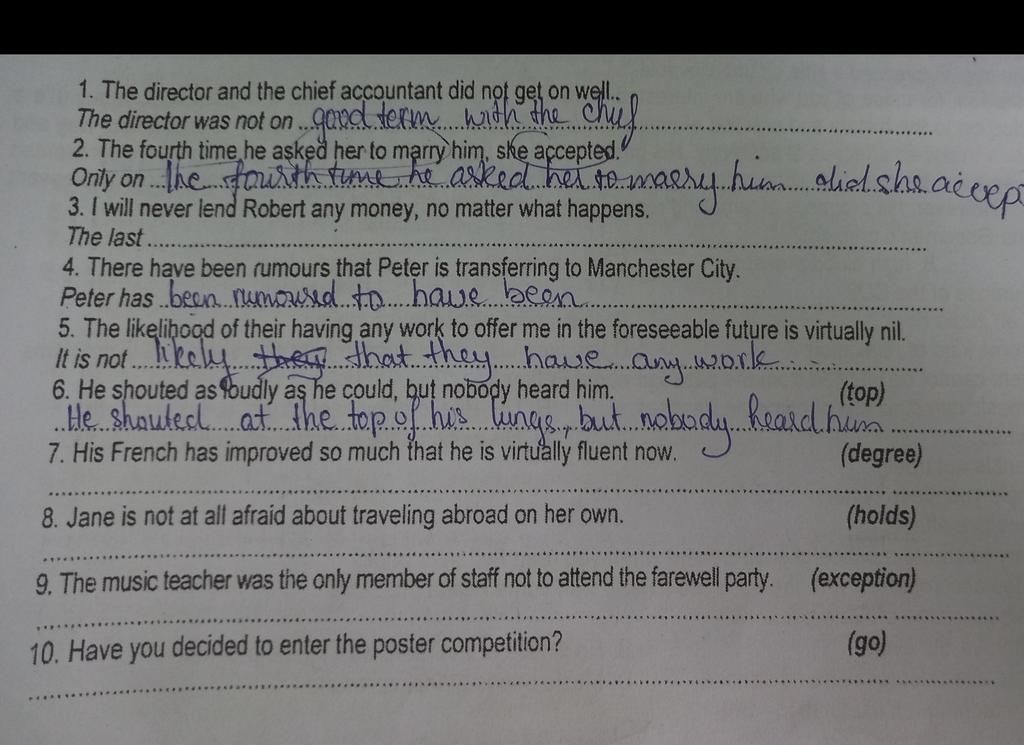 1. The director and the chief accountant did not get on well..
The director was not on ..good term with the chief
2. The fourth time he asked her to marry him, she accepted.
Only on ...the fourth time he asked her to marry him did she accept
3. I will never lend Robert any money, no matter what happens.
The last
4. There have been rumours that Peter is transferring to Manchester City.
Peter has been rumoured to have been
5. The likelihood of their having any work to offer me in the foreseeable future is virtually nil.
It is not likely they that they have any work
6. He shouted as loudly as he could, but nobody heard him. (top)
He shouted at the top of his lungs, but nobody heard him
7. His French has improved so much that he is virtually fluent now. (degree)
8. Jane is not at all afraid about traveling abroad on her own. (holds)
9. The music teacher was the only member of staff not to attend the farewell party. (exception)
10. Have you decided to enter the poster competition? (go)